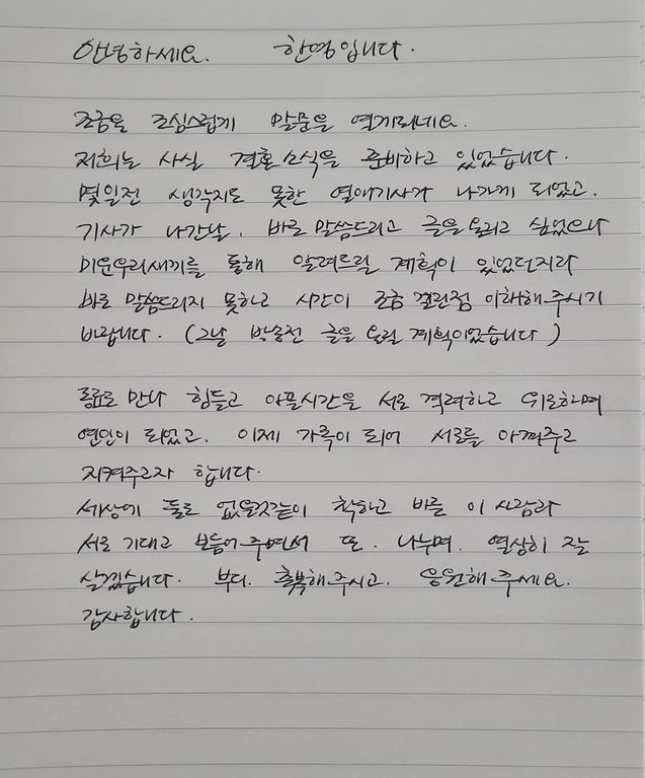 안녕하세요. 한영입니다.
조금은 조심스럽게 말문을 열게되네요.
저희는 사실 결혼소식을 준비하고 있었습니다.
몇일전 생각지도 못한 열애기사가 나가게 되었고.
기사가 나간날. 바로 말씀드리고 글을 올리고 싶었으나
미운우리새끼를 통해 알려드릴 계획이 있었던지라
바로 말씀드리지 못하고 시간이 조금 걸린점 이해해 주시기
바랍니다. (그날 방송전 글을 올릴 계획이었습니다)
동료로 만나 힘들고 아플시간을 서로 격려하고 위로하며
연인이 되었고. 이제 가족이 되어 서로를 아껴주고
지켜주고자 합니다.
세상에 둘도 없을것같이 착하고 바른 이 사람과
서로 기대고 보듬어 주면서 또. 나누며. 열심히 잘
살겠습니다. 부디. 축복해주시고. 응원해주세요.
감사합니다.